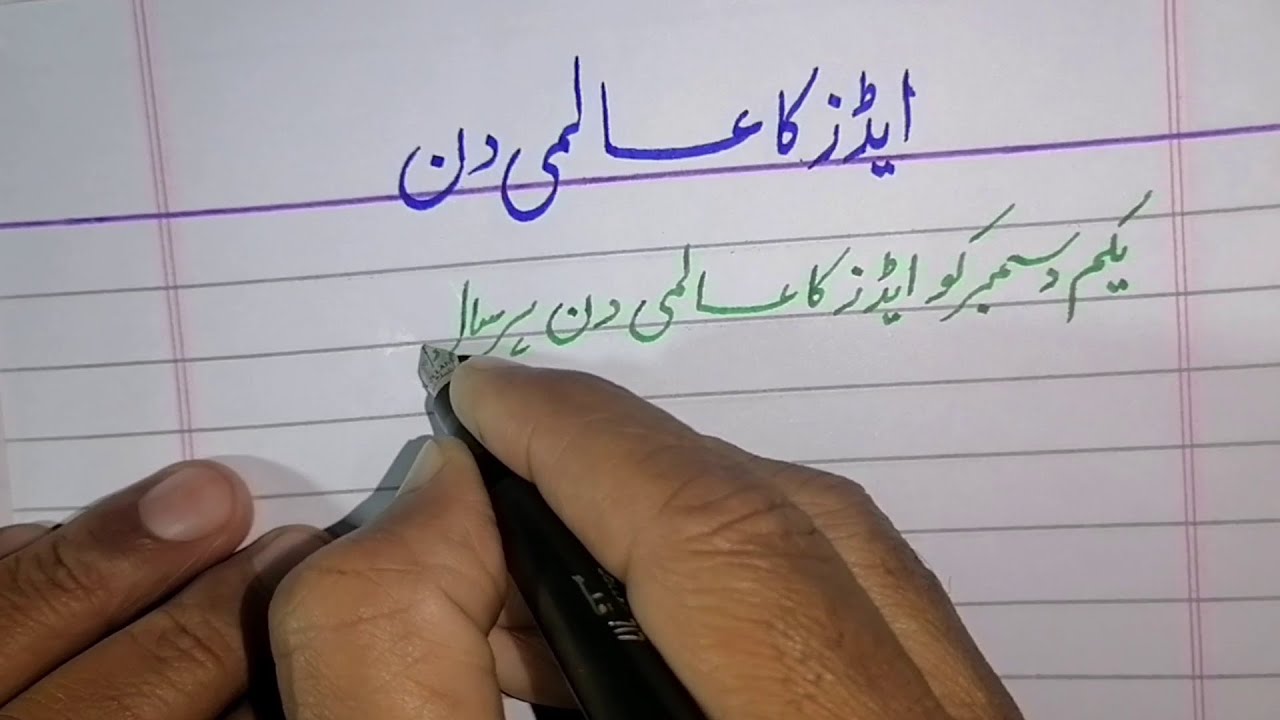 ایڈز کا عالمی دن
یکم دسمبر کو ایڈز کا عالمی دن ہر سال